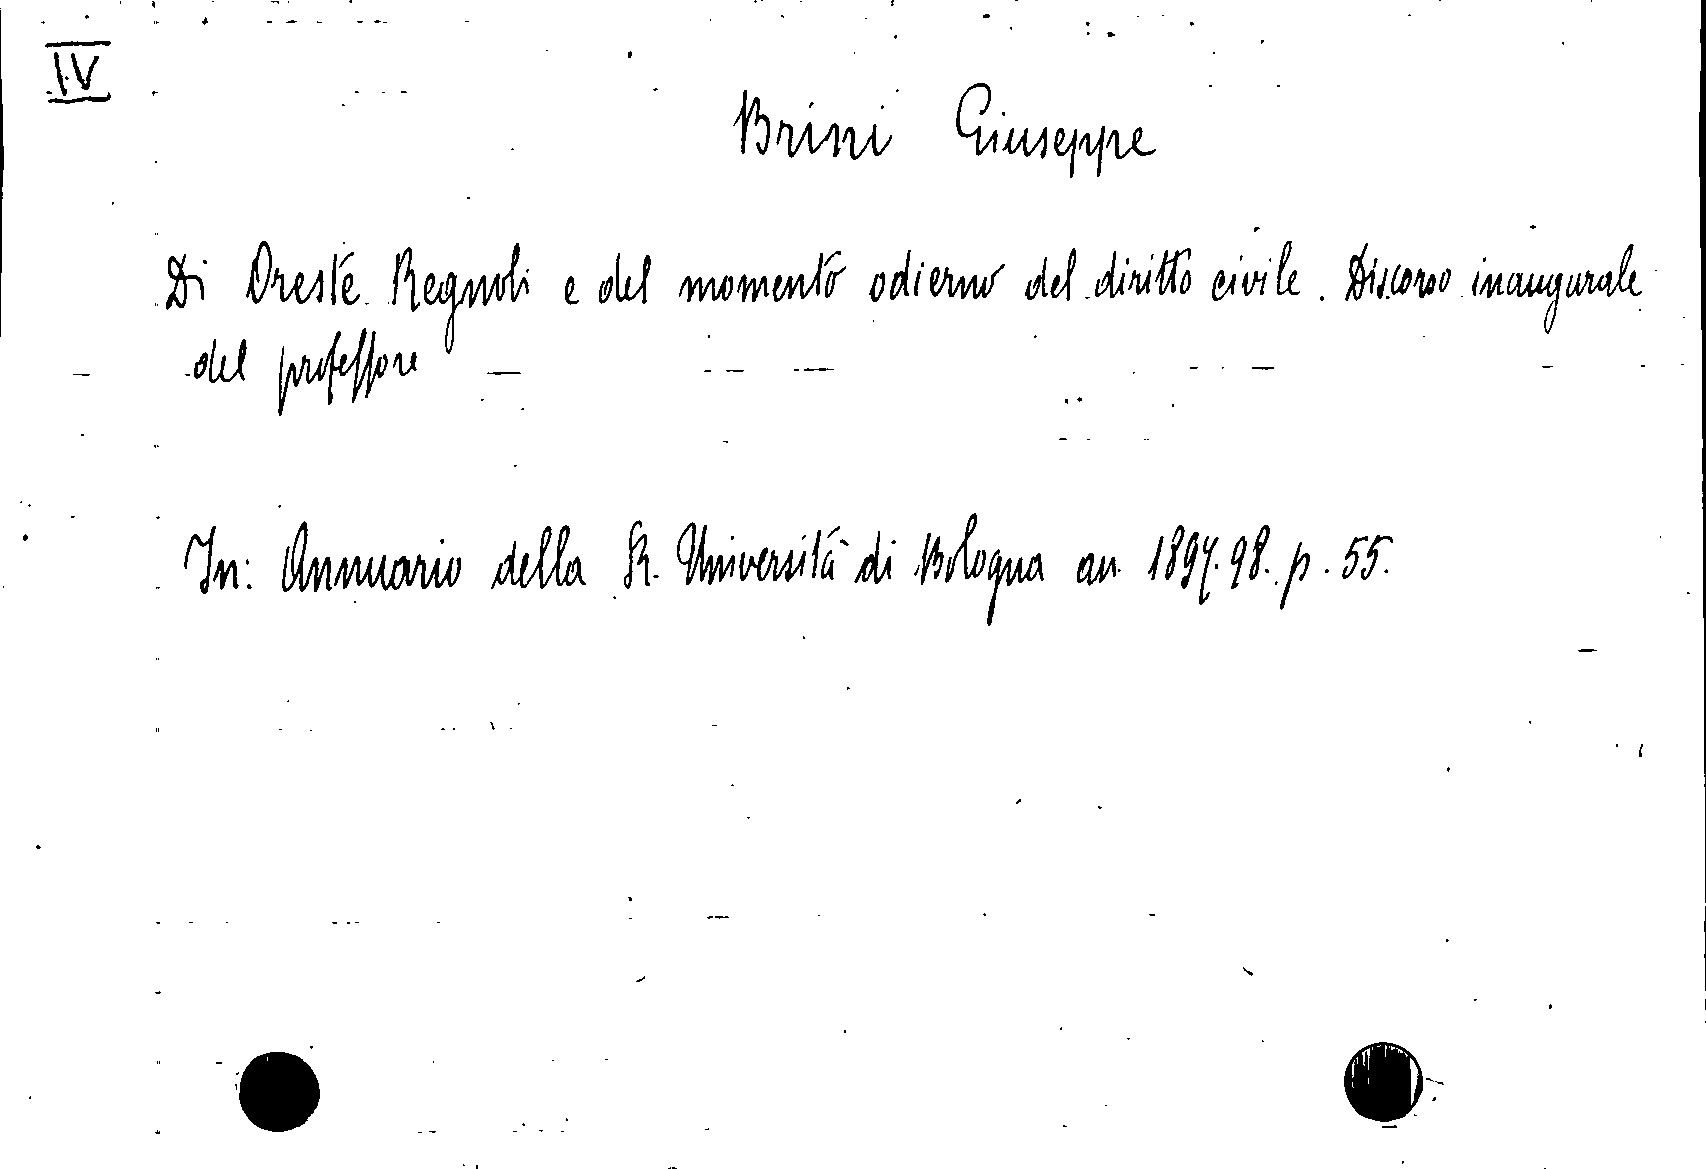 IV
Brini Giuseppe
Di Oreste Regnoli e del momento odierno del diritto civile. Discorso inaugurale
del professore
In: Annuario della R. Università di Bologna an. 1897.98. p. 55.